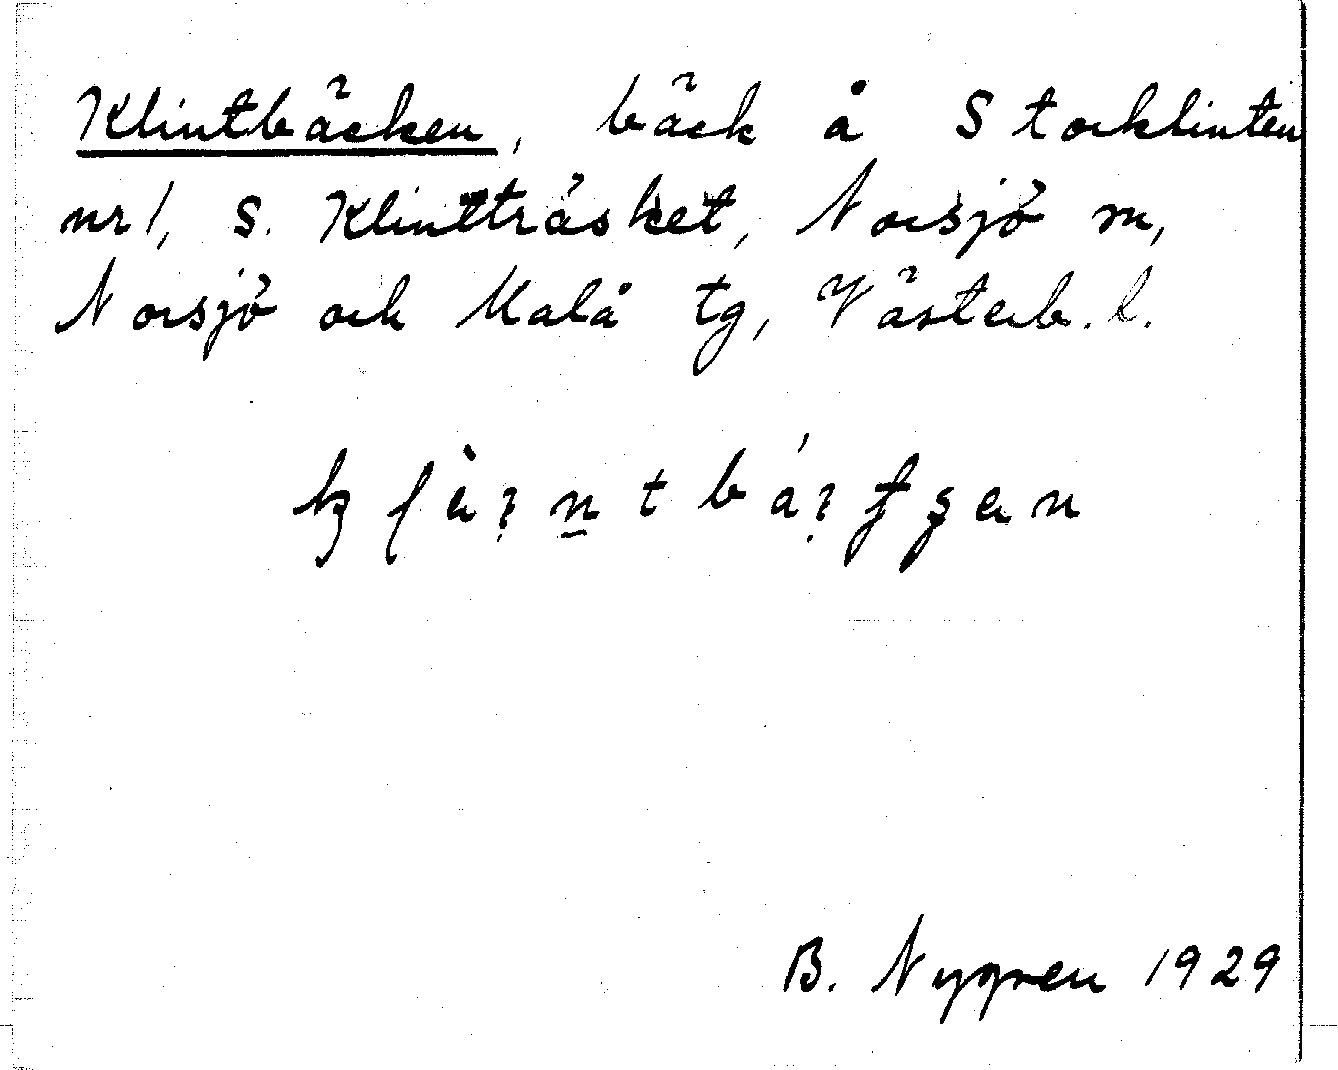 Klintbäcken, bäck å Storklinten
nr 1, s. Klintträsket, Norsjö sn,
Norsjö och Malå tg, Västerb. l.
B. Nygren 1929